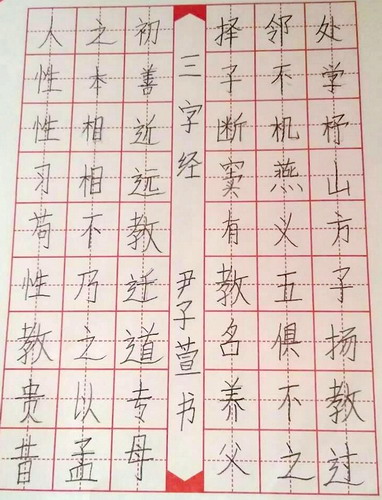 三字经
尹子萱书
人之初
性本善
性相近
习相远
苟不教
性乃迁
教之道
贵以专
昔孟母
择邻处
子不学
断机杼
窦燕山
有义方
教五子
名俱扬
养不教
父之过